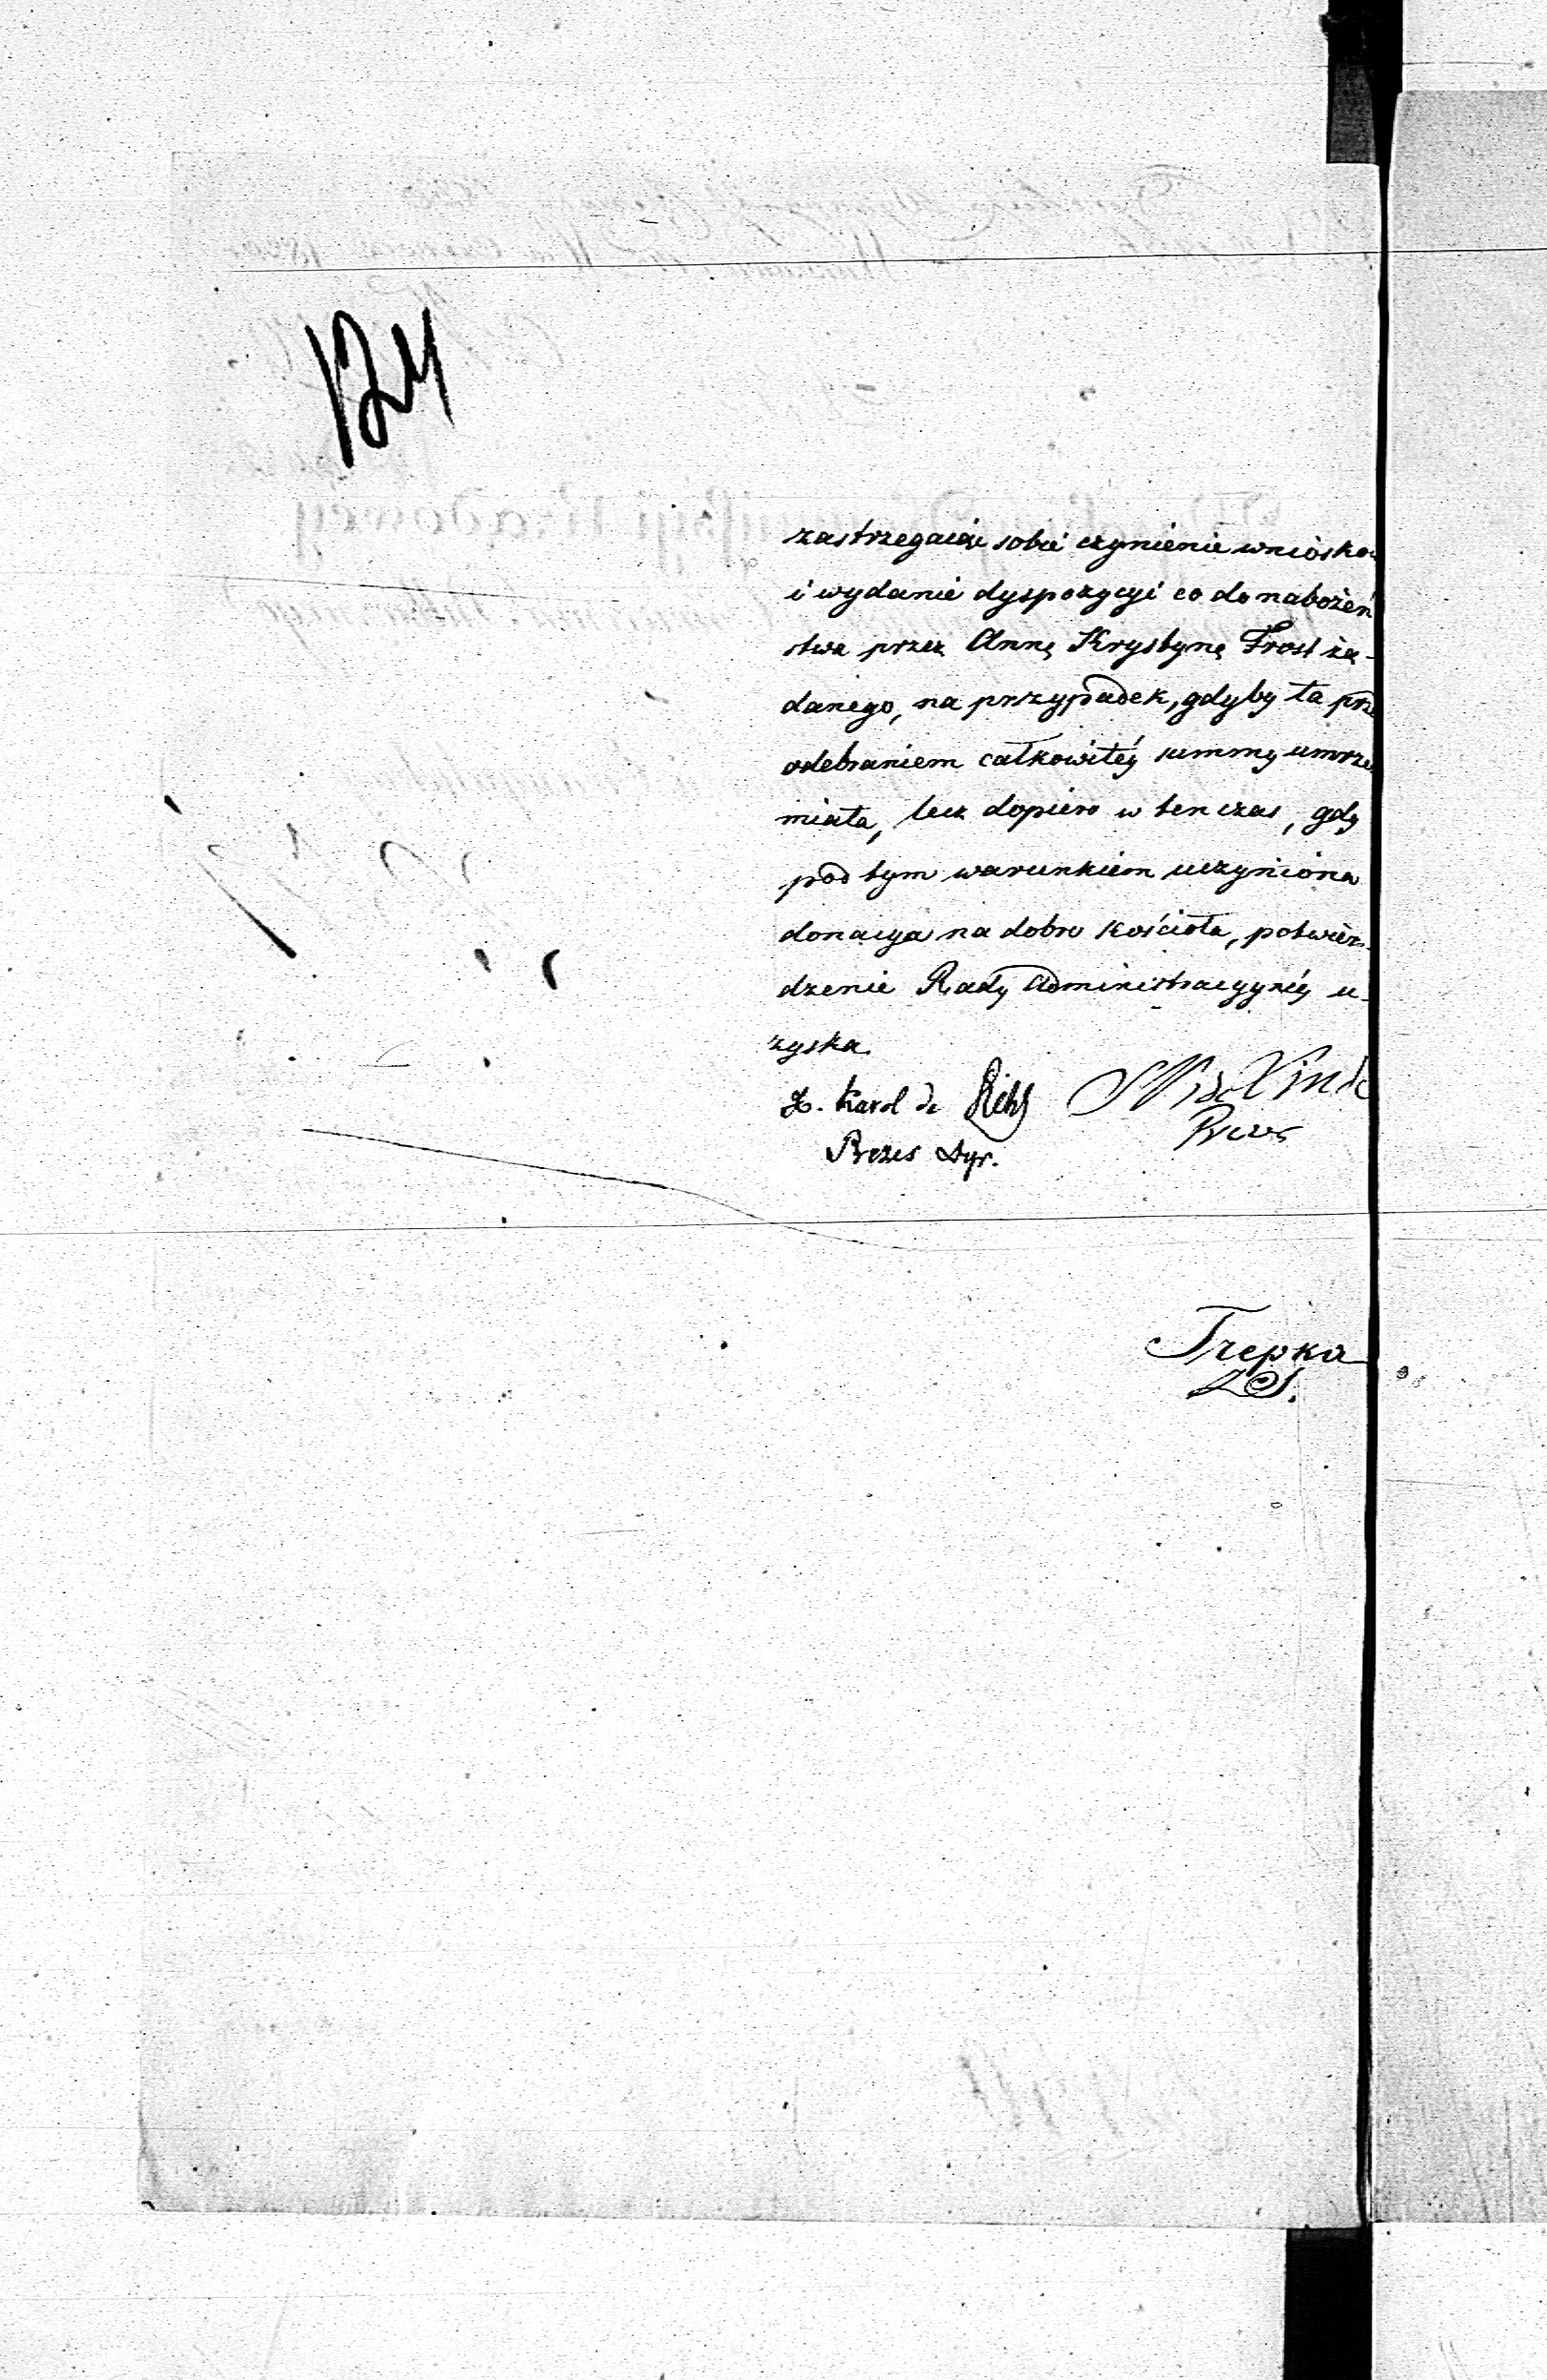 124
zastrzegaiąc sobie czynienie wniosko
i wydanie dyspozycyi co do nabożeń
stwa przez Annę Krystynę Frost żą-
danego, na przypadek, gdyby ta prze
odebraniem całkowitéy summy umrze
miała, lecz dopiero w ten czas, gdy
pod tym warunkiem uczyniona
donacya na dobro kościoła, potwier-
dzenie Rady Administracyynéy u-
zyska.
Karol de
Prezes Prezes Dyr.
Trepka